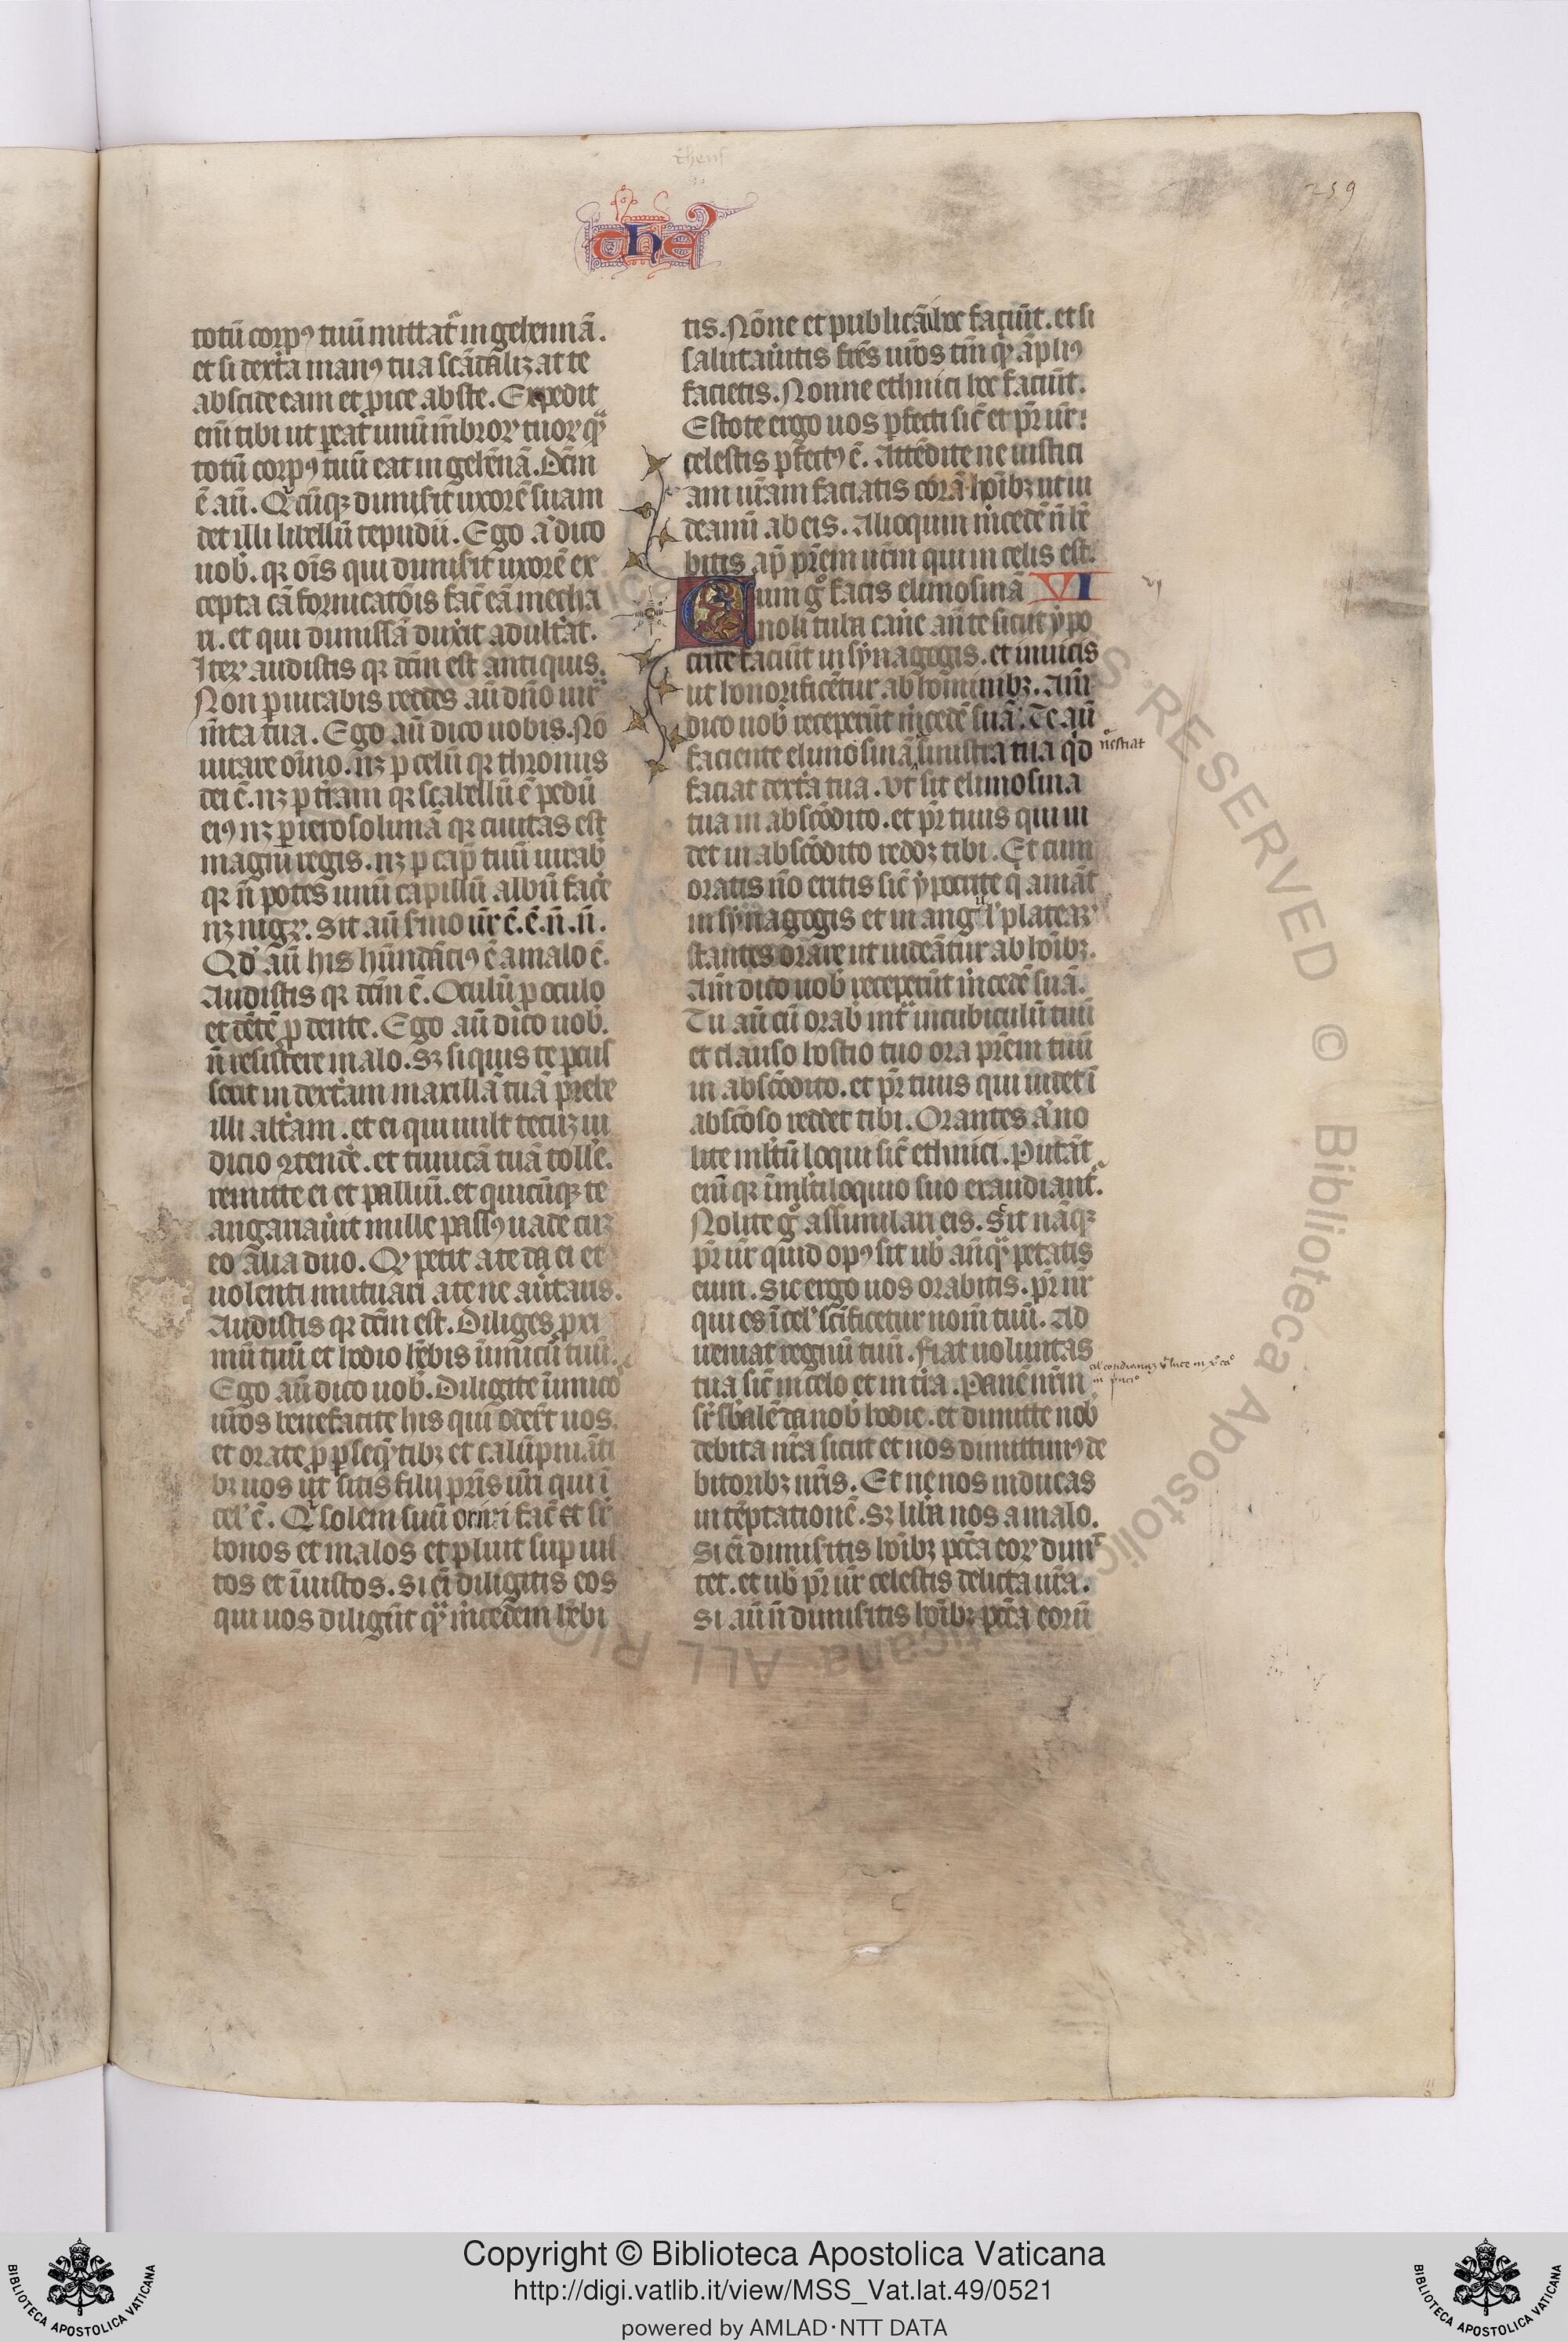 thens
the
259
totū corpꝰ tuū mittat᷑ in gehennā.
et si dextͣa manꝰ tua scādaliȝat te
abscide eam et ꝓice abs te. Expedit
eni̅ tibi ut ꝑeat unū mb̅roꝝ tuoꝝ qͣ̅
totū corpꝰ tuū eat in gehēnā. Dc̅m
ē au̅. Qͥcūqꝫ dimiserit uxorē suam
det illi libellū repudii. Ego aͥ dico
uob̅. qꝛ oīs qui dimiserit uxorē ex
cepta cā fornicatōis fac̅ eā mecha
ri. et qui dimissā duxͥit adult̅at.
Iteꝝ audistis qꝛ dc̅m est antiquis.
Non ꝑiurabis reddes au̅ dn̅o iurͣ
m̅ta tua. Ego au̅ dico uobis. Nō
iurare oīno. nꝫ ꝑ celū qꝛ thronus
dei ē. nꝫ ꝑ tr̅am qꝛ scabellū ē pedū
eiꝰ nꝫ ꝑ ierosolimā qꝛ ciuitas est
magni regis. nꝫ ꝑ cap̅ tuū iurab̅
qꝛ n̅ potes unū capillū albū fac̅e
nꝫ nigꝝ. Sit au̅ s̅mo ur̅ ē. ē. n̅. n̅.
Qd̓ au̅ his hūndāciꝰ ē a malo ē.
Audistis qꝛ dc̅m ē. Oculū ꝓ oculo
et dētē ꝓ dente. Ego au̅ dico uob̅.
n̅ resistere malo. Sꝫ si quis te ꝑcus
serit in dextͣam maxillā tuā prebe
illi alt̅am. et ei qui uult tecūȝ iu
dicio ꝯtend̅e. et tunicā tuā toll̅e.
remitte ei et palliū. et quicūqꝫ te
angariau̅it mille passꝰ uade cuȝ
eo alia duo. Qͥ petit a te da ei et
uolenti mutuari a te ne au̅taris.
Audistis qꝛ dc̅m est. Diliges ꝓxi
mū tuū et hodio hēbis inimicū tuū.
Ego au̅ dico uob̅. Diligite inimicoˢ
ur̅os benefacite his qui oder̅t uos.
et orate ꝓ ꝑseqͣ̅tibꝫ et calūpniāti
bꝫ uos ut sitis filii pr̅is ur̅i qui ī
cel̓ ē. Qͥ solem suū oriri fac̅ et sr̅
bonos et malos et pluit suꝑ ius
tos et īiustos. Si ei̅ diligitis eos
qui uos diligūt qͣ̅ m̅cedem hēbi
tis. Nōne et publicāi hoc faciūt. et si
salutau̅itis fr̅es ur̅os tm̅ qͥ āpliꝰ
facietis. Nonne ethnici hec faciūt.
Estote ergo uos ꝑfecti sic̅ et pr̅ ur̅:
celestis ꝑfectꝰ ē. Attēdite ne iustici
am ur̅am faciatis corā hoībꝫ ut ui
deamī ab eis. Alioquin m̅cedē n̅ hē
bitis ap̅ pr̅em ur̅m qui in celis est.
Cum gͦ facis elimosinā VI
vj
noli tuba can̅e an̅ te sicut ypo
crite faciūt in synagogis. et in uicis
ut honorificētur ab hominibꝫ. Am̅
dico uob̅ receperūt m̅cedē suā. Te au̅
faciente elimosinā sinistra tua qd̓
nesciat
faciat dextͣa tua. ut sit elimosina
tua in abscōdito. et pr̅ tuus qui ui
det in abscōdito reddꝫ tibi. Et cum
oratis nō eritis sic̅ ypocrite q̅ amāt
in synagogis et in angul̓ plateaꝝ
stantes orare ut uideātur ab hoībꝫ.
Am̅ dico uob̅ receperūt m̅cedē suā.
Tu au̅ cū orab̅ intͣ in cubiculū tuū
et clauso hostio tuo ora pr̅em tuū
in abscōdito. et pr̅ tuus qui uidet ī
abscōso reddet tibi. Orantes aͥ no
lite ml̅tū loqui sic̅ ethnici. Putāt
eni̅ qꝛ ī ml̅tiloquio suo exaudiant᷑.
Nolite gͦ assimilari eis. Scit nāqꝫ
pr̅ ur̅ quid opꝰ sit ub̅ an̅qͣ̅ petatis
eum. Sic ergo uos orabitis. pr̅ nr̅
qui es ī cel̓ sc̅ificetur nom̅ tuū. Ad
ueniat regnū tuū. Fiat uoluntas
tua sic̅ in celo et in tr̅a. Panē nr̅m
sr̅sb̅alē da nob̅ hodie. et dimitte nob̅
debita nr̅a sicut et nos dimittimꝰ de
bitoribꝫ nr̅is. Et ne nos inducas
in tēptationē. Sꝫ lib̅a nos a malo.
Si ei̅ dimisitis hoībꝫ pct̅a eoꝝ dimͭ
tet. et ub̅ pr̅ ur̅ celestis delicta ur̅a.
Si au̅ n̅ dimisitis hoībꝫ pct̅a eorū
Copyright © Biblioteca Apostolica Vaticana
http://digi.vatlib.it/view/MSS_Vat.lat.49/0521
powered by AMLAD·NTT DATA
BIBLIOTECA APOSTOLICA VATICANA
BIBLIOTECA APOSTOLICA VATICANA